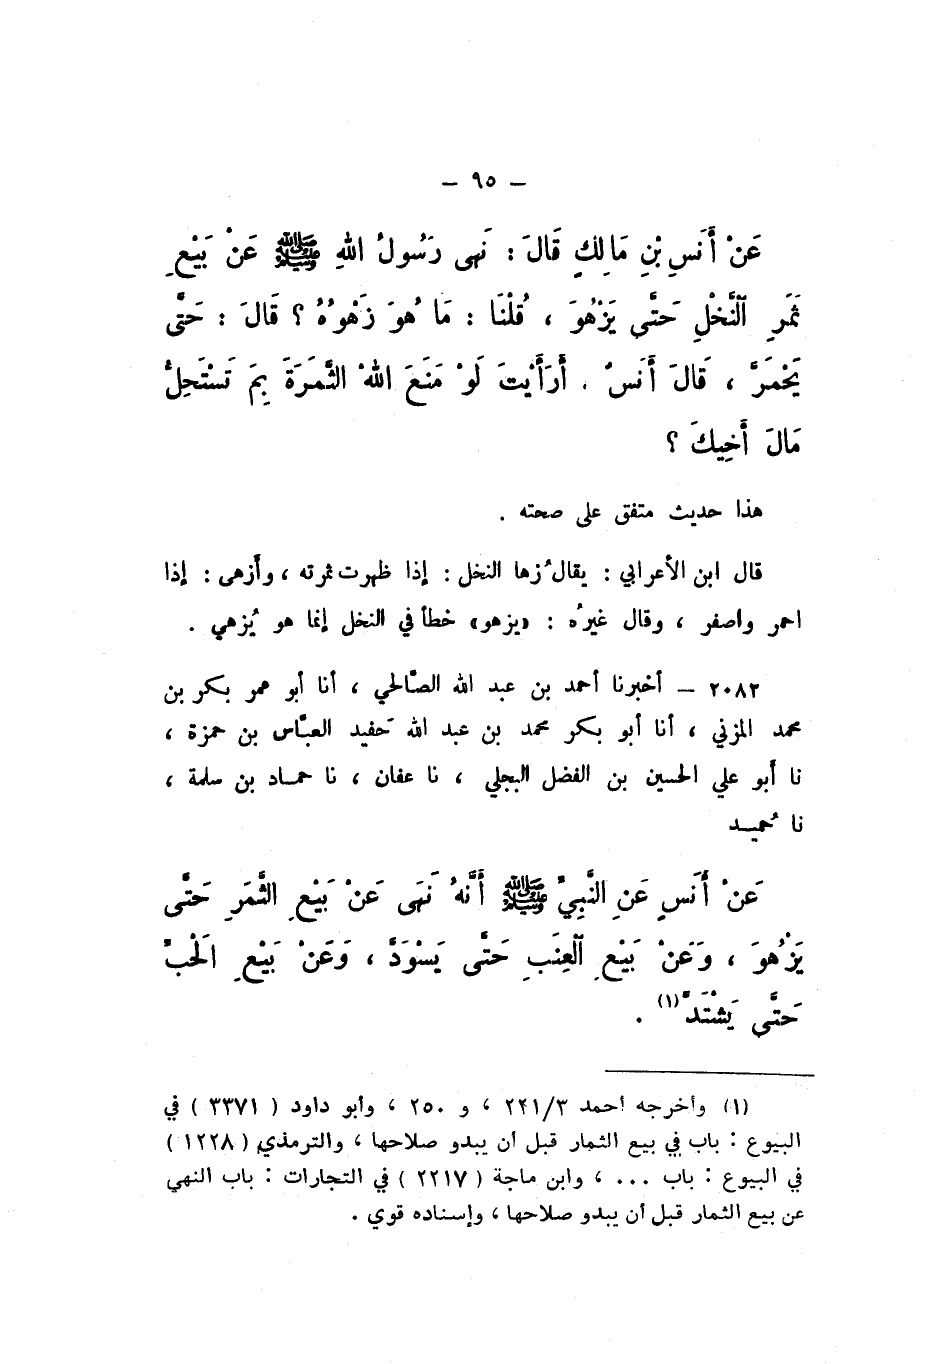 – ٩٥ –
عَنْ أَنَسِ بْنِ مَالِكٍ قَالَ : نَهى رَسُولُ اللهِ ﷺ عَنْ بَيْعِ
ثَمَرِ ٱلنَّخْلِ حَتَّى يَزْهُوَ ، قُلْنَا : مَا هُوَ زَهْوُهُ ؟ قَالَ : حَتَّى
يَحْمَرَّ ، قَالَ أَنَسٌ . أَرَأَيْتَ لَوْ مَنَعَ اللهُ الثَّمَرَةَ بِمَ تَسْتَحِلُّ
مَالَ أَخِيكَ ؟
هذا حديث متفق على صحته .
قال ابن الأعرابي : يقال زُها النخل : إذا ظهرت ثمرته ، وأَزهى : إذا
احمر واصفر ، وقال غيرُه : «يزهو» خطأ في النخل إنما هو يُزهي .
٢٠٨٢ – أخبرنا أحمد بن عبد الله الصَّالحي ، أنا أبو عمر بكر بن
محمد المزني ، أنا أبو بكر محمد بن عبد الله حَفيد العبَّاس بن حمزة ،
نا أَبو علي الحسين بن الفضل البجلي ، نا عفان ، نا حماد بن سلمة ،
نا حُميد
عَنْ أَنَسٍ عَنِ النَّبِيِّ ﷺ أَنَّهُ نَهَى عَنْ بَيْعِ الثَّمَرِ حَتَّى
يَزْهُوَ ، وَعَنْ بَيْعِ ٱلعِنَبِ حَتَّى يَسْوَدَّ ، وَعَنْ بَيْعِ الْحَبِّ
حَتَّى يَشْتَدَّ(١) .
(١) وأخرجه أحمد ٢٢١/٣ ، و ٢٥٠ ، وأبو داود ( ٣٣٧١ ) في
البيوع : باب في بيع الثمار قبل أن يبدو صلاحها ، والترمذي ( ١٢٢٨ )
في البيوع : باب ... ، وابن ماجة ( ٢٢١٧ ) في التجارات : باب النهي
عن بيع الثمار قبل أن يبدو صلاحها ، وإسناده قوي .